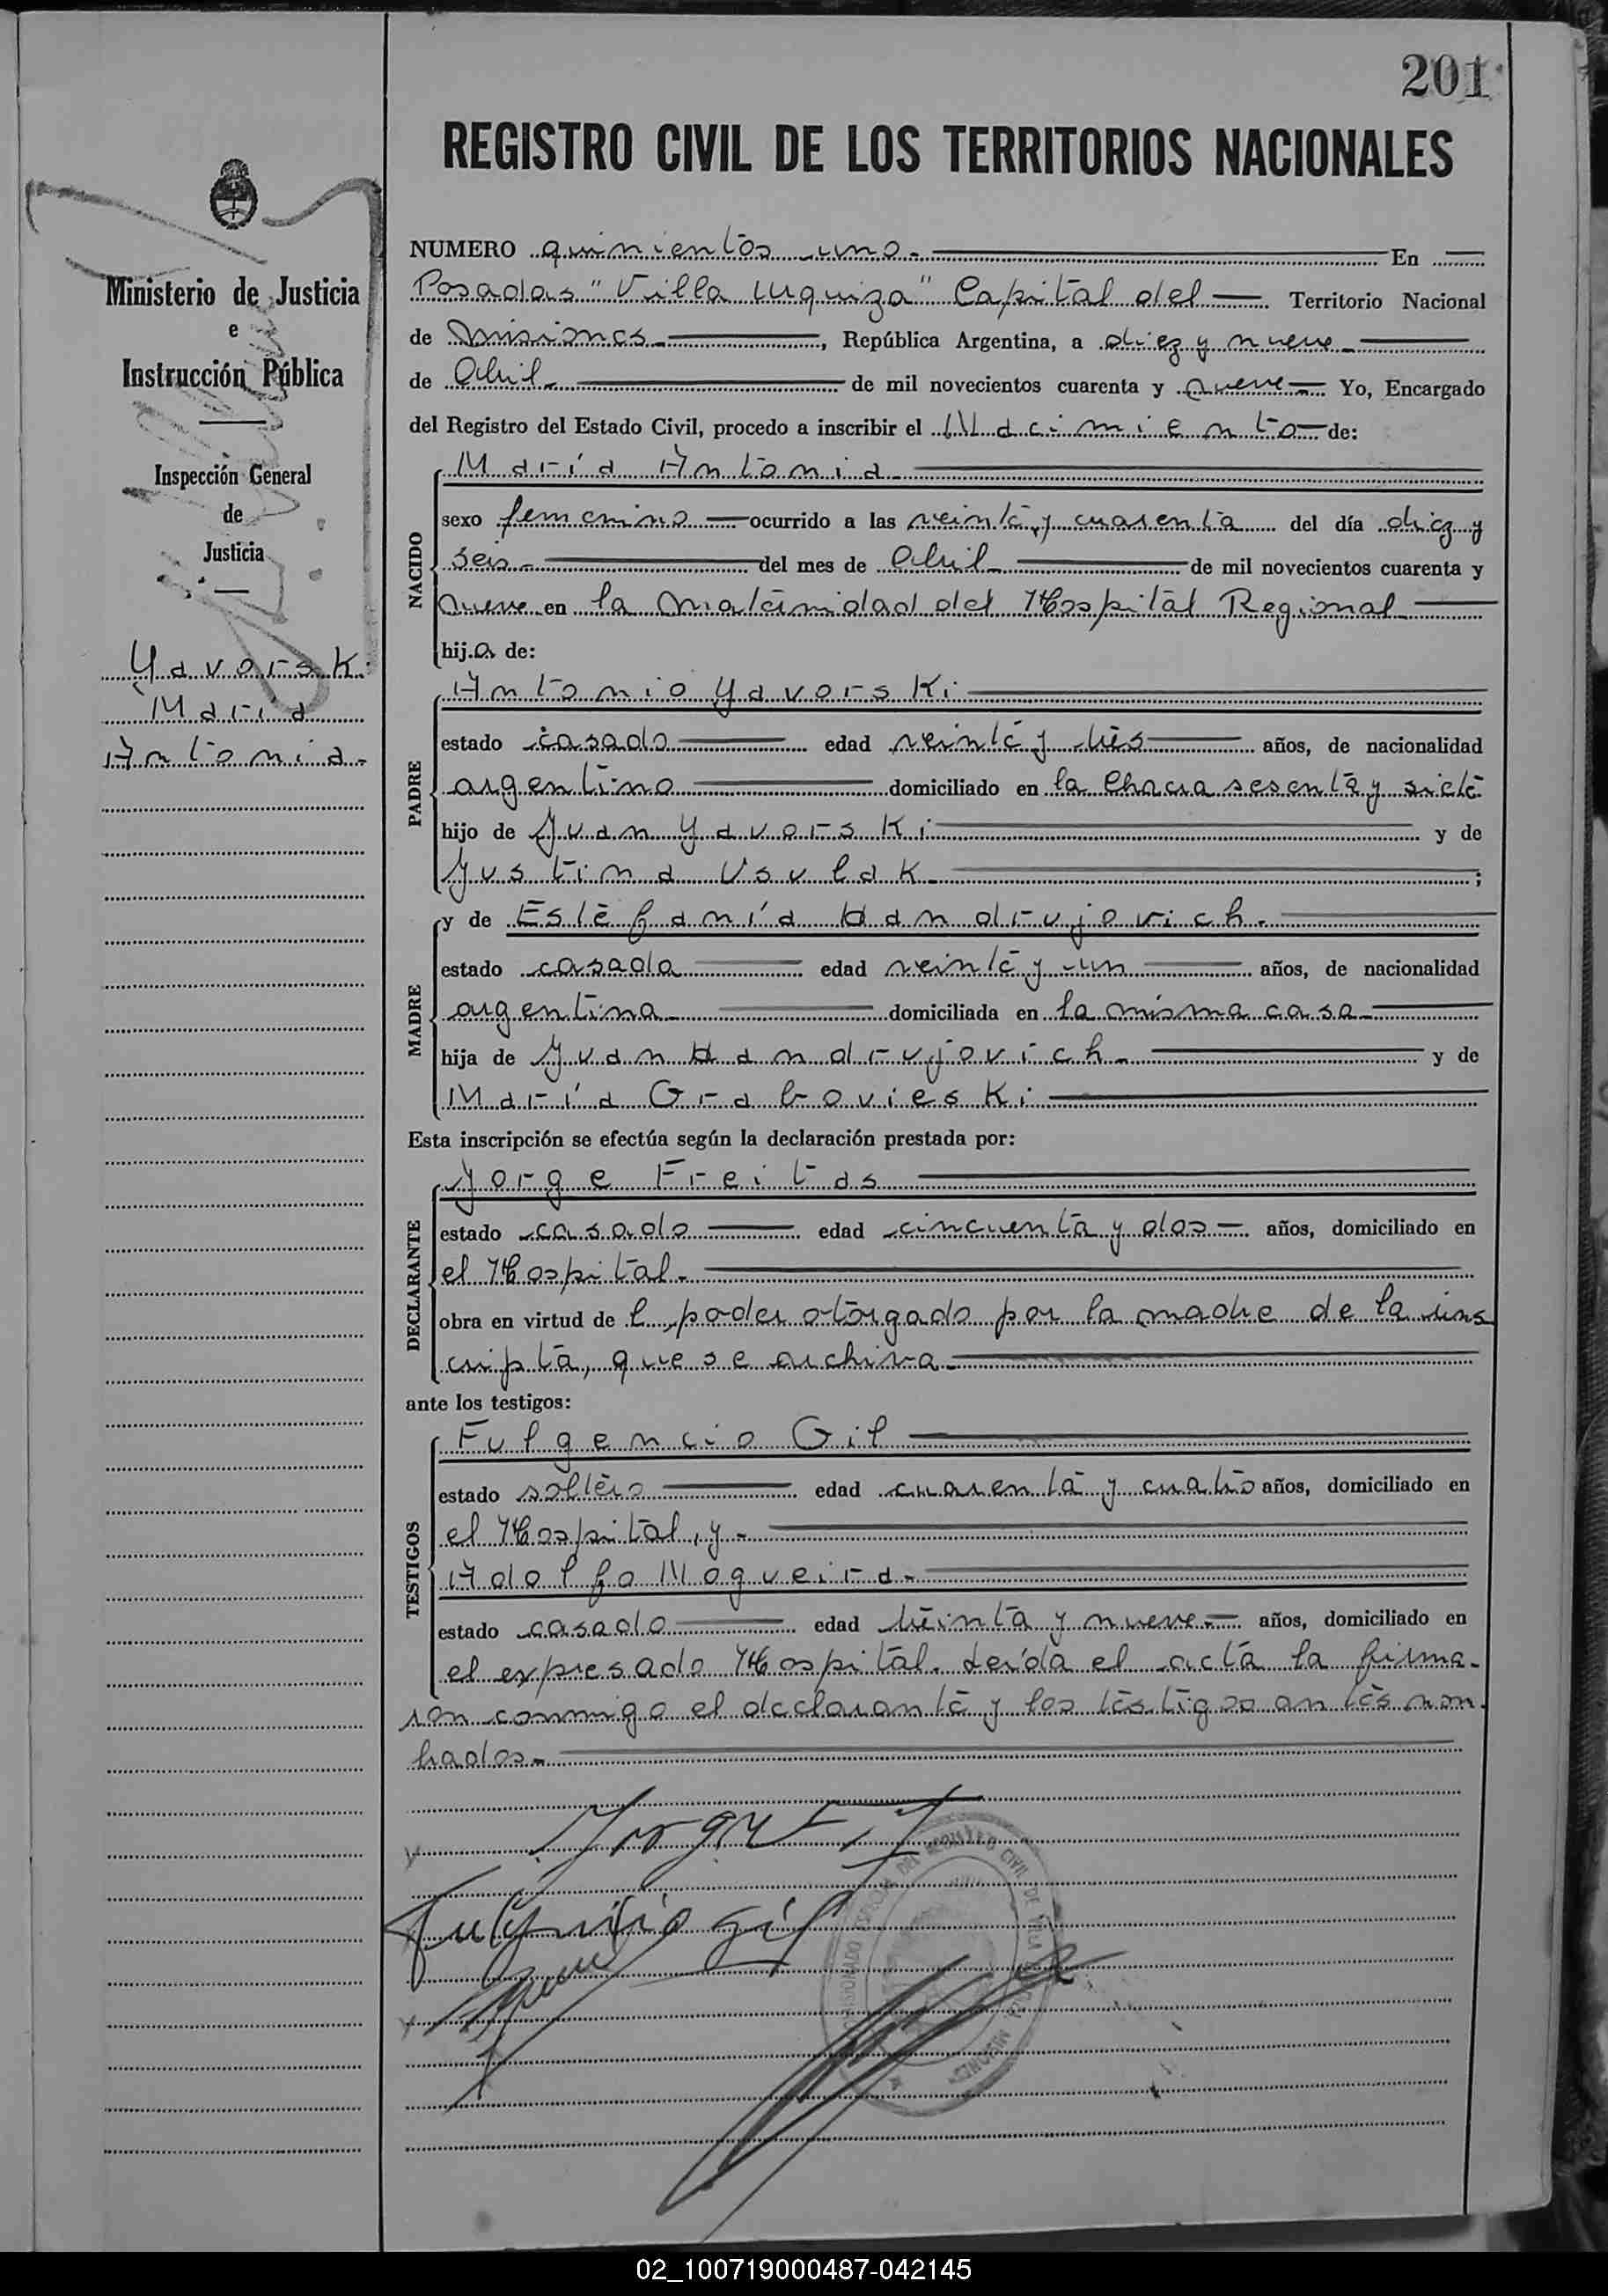 201
REGISTRO CIVIL DE LOS TERRITORIOS NACIONALES
Ministerio de Justicia
e
Instrucción Pública
Inspección General
de
Justicia
Yavorski
María
Antonia.-
NUMERO quinientos uno.- En
Posadas "Villa Urquiza" Capital del Territorio Nacional
de Misiones.- , República Argentina, a diez y nueve.-
de Abril.- de mil novecientos cuarenta y nueve.- Yo, Encargado
del Registro del Estado Civil, procedo a inscribir el Nacimiento de:
María Antonia.-
NACIDO
sexo femenino ocurrido a las veinte y cuarenta del día diez y
seis.- del mes de Abril.- de mil novecientos cuarenta y
nueve en la Maternidad del Hospital Regional
hija de:
PADRE
Antonio Yavorski
estado casado edad veinte y tres años, de nacionalidad
argentino domiciliado en la Chacra sesenta y siete
hijo de Juan Yavorski y de
Justina Usulak.- ;
MADRE
y de Estefanía Handrujovich.-
estado casada edad veinte y un años, de nacionalidad
argentina.- domiciliada en la misma casa.-
hija de Juan Handrujovich.- y de
María Grabovieski
Esta inscripción se efectúa según la declaración prestada por:
DECLARANTE
Jorge Freitas
estado casado edad cincuenta y dos años, domiciliado en
el Hospital.-
obra en virtud de l poder otorgado por la madre de la ins
cripta, que se archiva.-
ante los testigos:
TESTIGOS
Fulgencio Gil
estado soltero edad cuarenta y cuatro años, domiciliado en
el Hospital, y.-
Adolfo Nogueira.-
estado casado edad treinta y nueve.- años, domiciliado en
el expresado Hospital. Leída el acta la firma-
ron conmigo el declarante y los testigos antes nom
brados.-
Jorge F
Fulgencio Gil
DEL REGISTRO CIVIL DE VILLA MISIONES
02_100719000487-042145